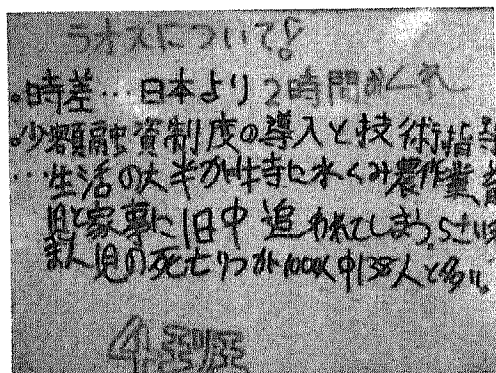 ラオスについて!
・時差…日本より2時間おくれ
・少額融資制度の導入と技術指導
…生活の大半が 水くみ農作業、育
児と家事に1日中追われてしまう。5さいま
児の死亡りつが1000人中138人と多い。